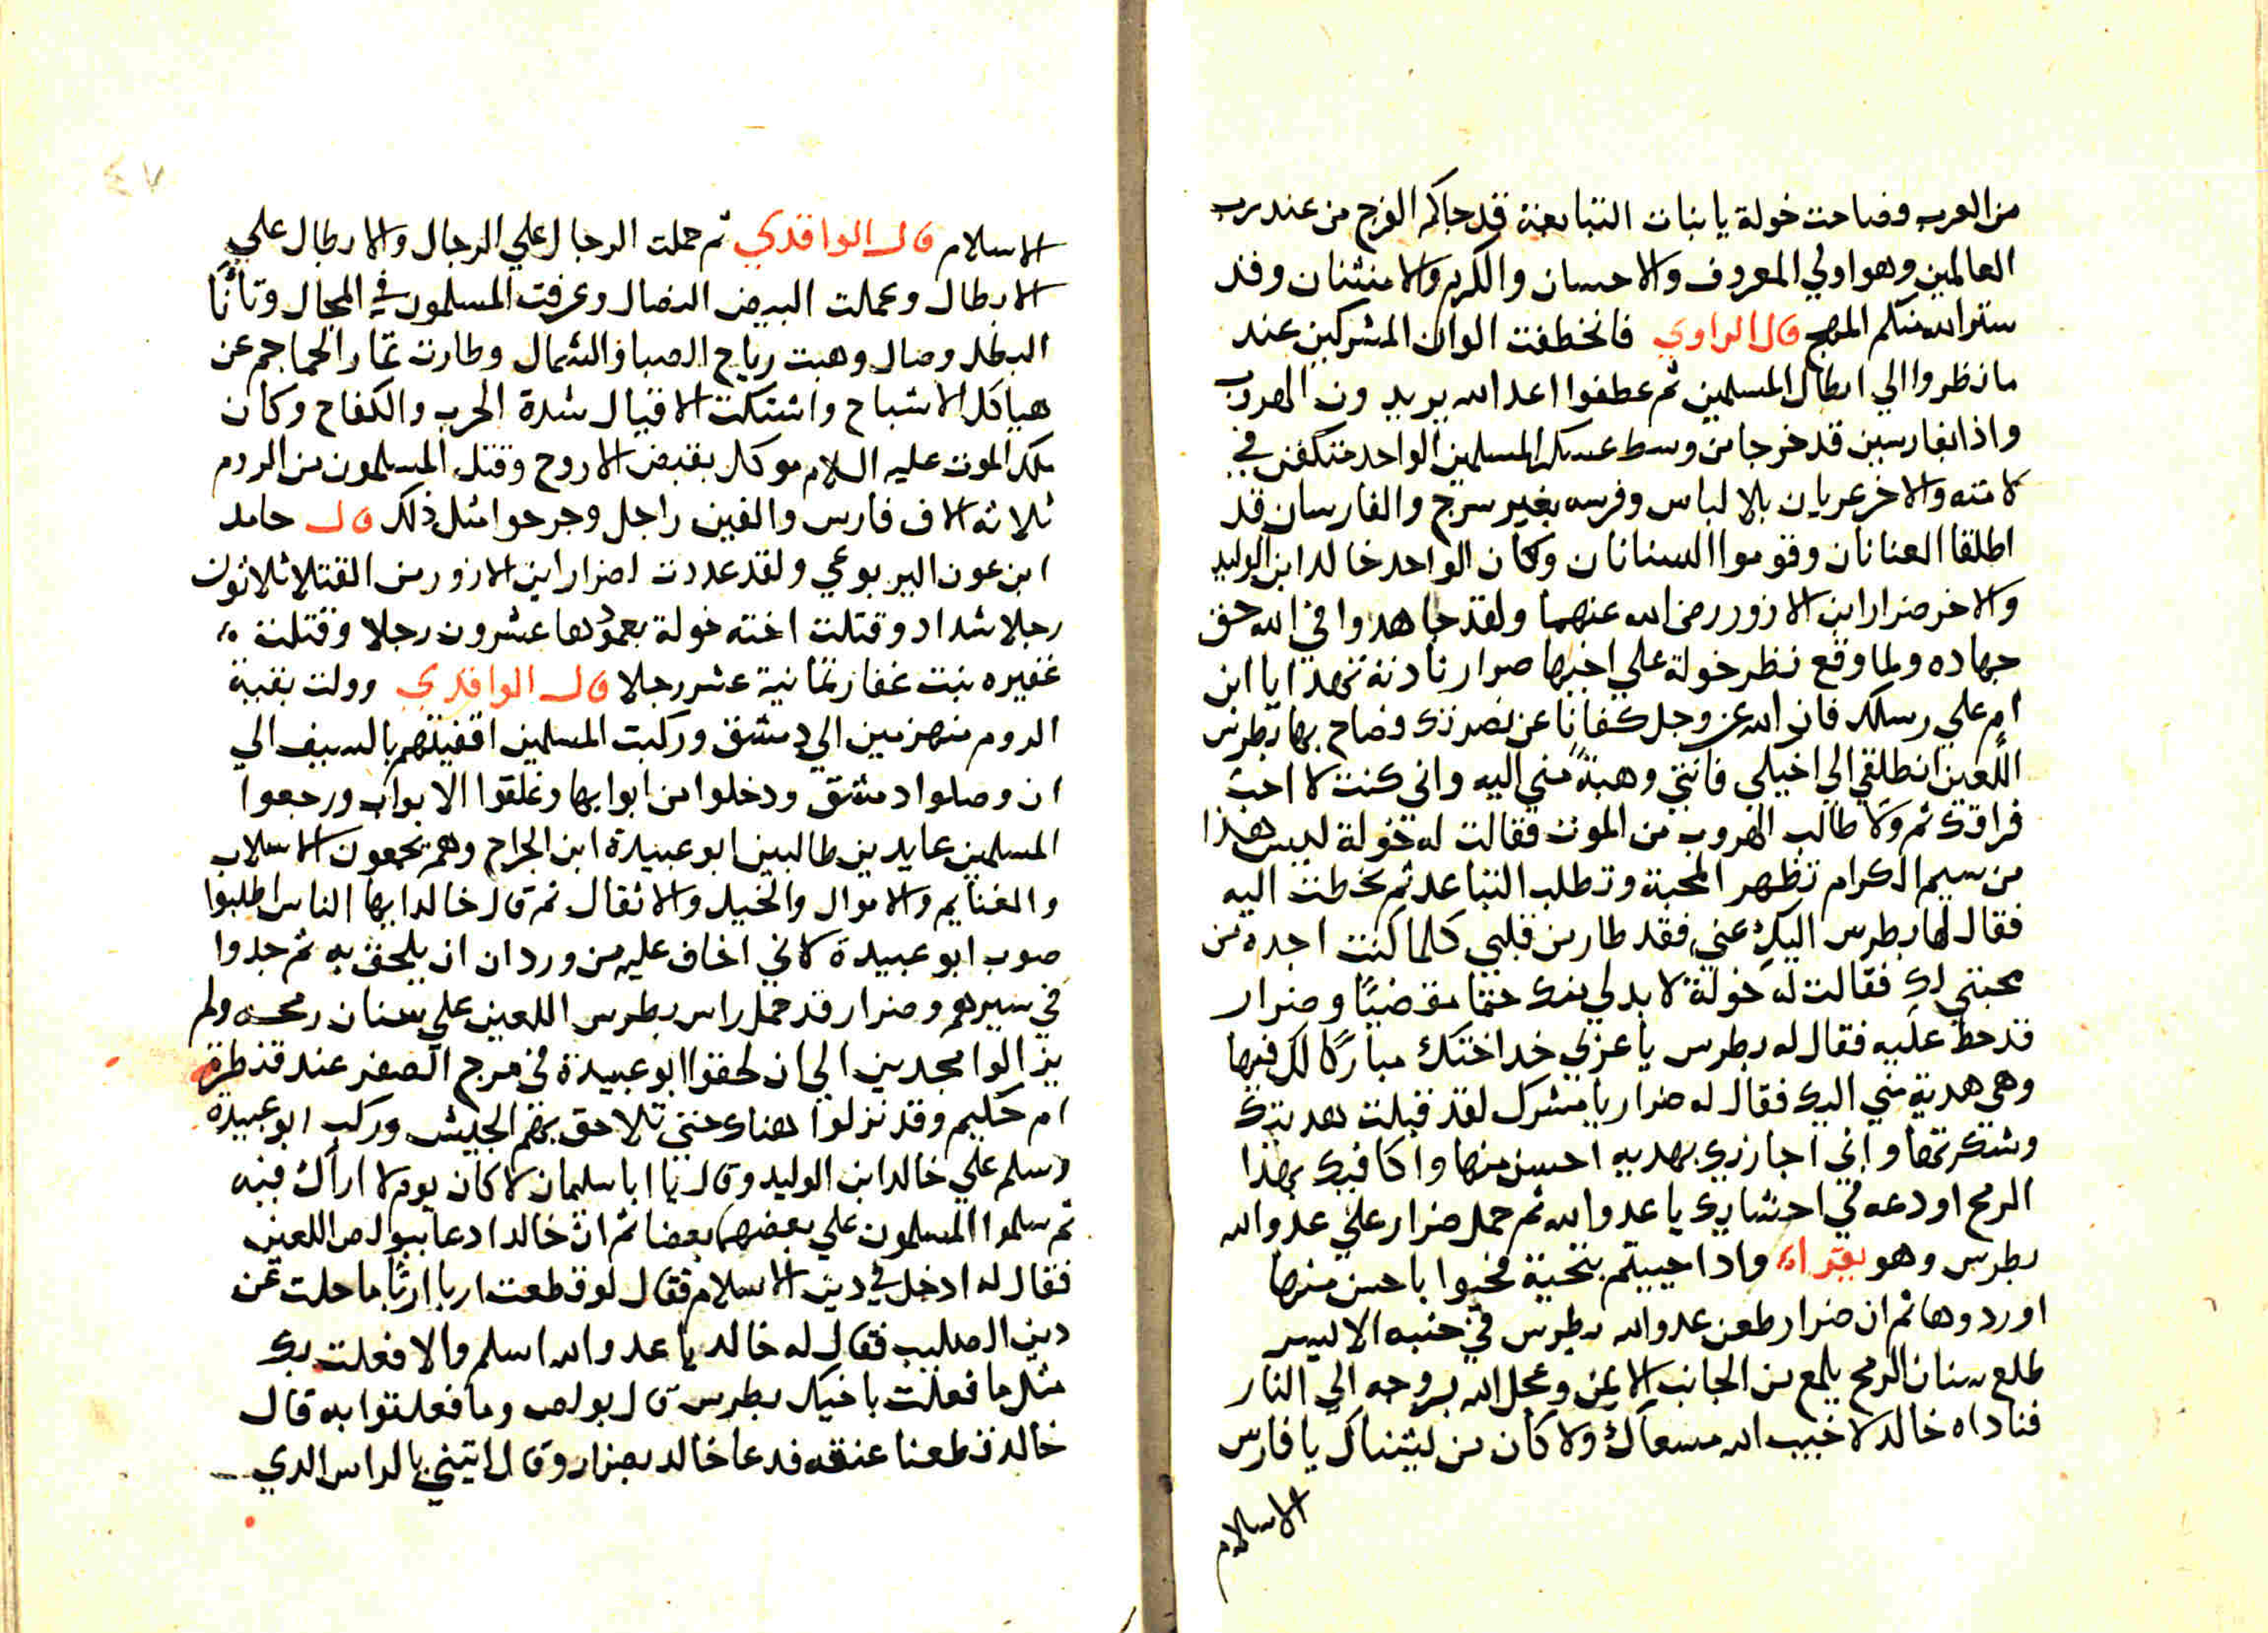 من العرب وصاحت خولة يا بنات التبابعة قد جاكم الفرج من عند رب
العالمين وهو اولي المعروف والاحسان والكرم والامتنان وقد
ستر الله منكم المهج قال الراوي فانخطفت الوان المشركين عند
ما نظروا الي ابطال المسلمين ثم عطفوا اعدا الله يريدون الهروب
واذا بفارسين قد خرجا من وسط عسكر المسلمين الواحد متكفن في
لامته والاخر عريان بلا لباس وفرسه بغير سرج والفارسان قد
اطلقا العنانان وقوموا السنانان وكان الواحد خالد ابن الوليد
والاخر ضرار ابن الازور رضي الله عنهما ولقد جاهدوا في الله حق
جهاده ولما وقع نظر خولة علي اخيها ضرار نادته تهدا يا ابن
ام علي رسلك فان الله عز وجل كفانا عن نصرتك وصاح بها بطرس
اللعين انطلقي الي اخيكي فانتي وهبة مني اليه واني كنت لا احب
فراقك ثم ولا طالب الهروب من الموت فقالت له خولة ليس هذا
من سيم الكرام تظهر المحبة وتطلب التباعد ثم خطت اليه
فقال لها بطرس اليك عني فقد طار من قلبي كلما كنت اجده من
محبتي لك فقالت له خولة لا بد لي منك حتما مقضيا وضرار
قد حط عليه فقال له بطرس يا عربي خد اختك مباركا لك فيها
وهي هدية مني اليك فقال له ضرار يا مشرك لقد قبلت هديتك
وشكرتها واني اجازيك بهديه احسن منها واكافيك بهذا
الرمح اودعه في احشايك يا عدو الله ثم حمل ضرار علي عدو الله
بطرس وهو يقراء واذا حييتم بتحية فحيوا باحسن منها
او ردوها ثم ان ضرار طعن عدو الله بطرس في جنبه الايسر
طلع سنان الرمح يلمع من الجانب الايمن وعجل الله بروحه الي النار
فناداه خالد لا خيب الله مسعاك ولا كان من يشناك يا فارس
الاسلام
الاسلام قال الواقدي ثم حملت الرجال علي الرجال والابطال علي
الابطال وعملت البيض النصال وعرفت المسلمون في المجال وتأنّا
البطل وصال وهبت رياح الصبا والشمال وطارت تمار الجماجم عن
هياكل الاشباح واشتكت الاقيال شدة الحرب والكفاح وكان
ملك الموت عليه السلام موكل بقبض الاروح وقتل المسلمون من الروم
ثلاثه الاف فارس والفين راجل وجرحوا مثل ذلك قال حامد
ابن عون اليربوعي ولقد عددت لضرار ابن الازور من القتلا ثلاثون
رجلا شداد وقتلت اخته خولة بعمودها عشرون رجلا وقتلت
غفيره بنت غفار ثمانية عشر رجلا قال الواقدي وولت بقية
الروم منهزمين الي دمشق وركبت المسلمين اقفيتهم بالسيف الي
ان وصلوا دمشق ودخلوا من ابوابها وغلقوا الابواب ورجعوا
المسلمين عايدين طالبين ابو عبيدة ابن الجراح وهم يجمعون الاسلاب
والغنايم والاموال والخيل والاثقال ثم قال خالد ايها الناس اطلبوا
صوب ابو عبيدة لاني اخاف عليه من وردان ان يلحق به ثم جدوا
في سيرهم وضرار قد حمل راس بطرس اللعين علي سنان رمحه ولم
يزالوا مجدين الي ان لحقوا ابو عبيدة في مرج الصفر عند قنطرة
ام حكيم وقد نزلوا هناك حتي تلاحق بهم الجيش وركب ابو عبيدة
وسلم علي خالد ابن الوليد وقال يا ابا سليمان لا كان يوم لا اراك فيه
ثم سلموا المسلمون علي بعضهم بعضا ثم ان خالدا دعا ببولص اللعين
فقال له ادخل في دين الاسلام فقال لو قطعت اربا اربًا ما حلت عن
دين الصليب فقال له خالد يا عدو الله اسلم والا فعلت بك
مثل ما فعلت باخيك بطرس قال بولص وما فعلتوا به قال
خالد قطعنا عنقه فدعا خالد بضرار وقال ايتيني بالراس الدي